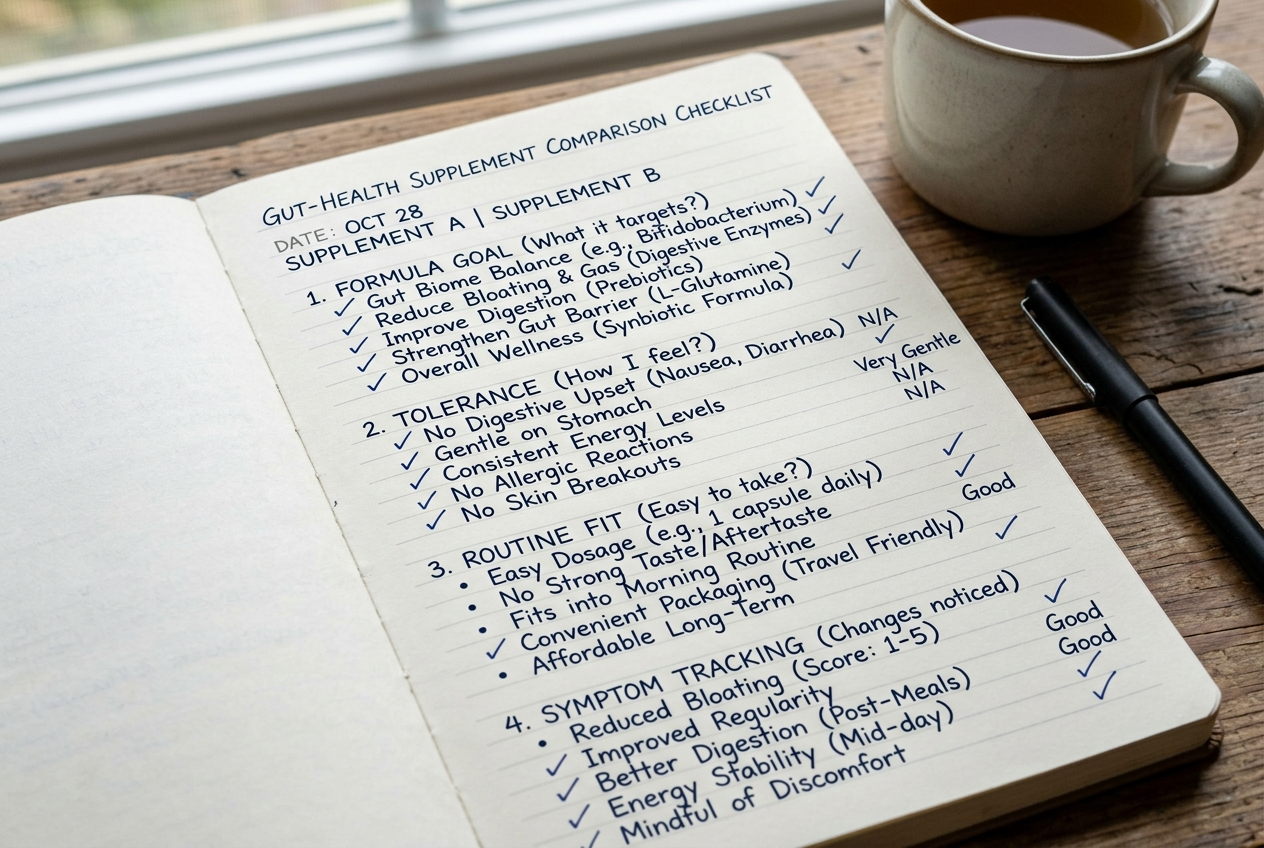 GUT-HEALTH SUPPLEMENT COMPARISON CHECKLIST
DATE: OCT 28
SUPPLEMENT A | SUPPLEMENT B
1. FORMULA GOAL (What it targets?) ✓
✓ Gut Biome Balance (e.g., Bifidobacterium) ✓
✓ Reduce Bloating & Gas (Digestive Enzymes) ✓
✓ Improve Digestion (Prebiotics)
✓ Strengthen Gut Barrier (L-Glutamine) ✓
✓ Overall Wellness (Synbiotic Formula)
2. TOLERANCE (How I feel?) N/A
✓ No Digestive Upset (Nausea, Diarrhea) ✓
✓ Gentle on Stomach Very Gentle
✓ Consistent Energy Levels N/A
✓ No Allergic Reactions N/A
✓ No Skin Breakouts
3. ROUTINE FIT (Easy to take?) ✓
• Easy Dosage (e.g., 1 capsule daily) ✓
• No Strong Taste/Aftertaste Good
• Fits into Morning Routine
✓ Convenient Packaging (Travel Friendly) ✓
• Affordable Long-Term
4. SYMPTOM TRACKING (Changes noticed) ✓
• Reduced Bloating (Score: 1-5) Good
✓ Improved Regularity Good
✓ Better Digestion (Post-Meals) ✓
✓ Energy Stability (Mid-day) ✓
✓ Mindful of Discomfort